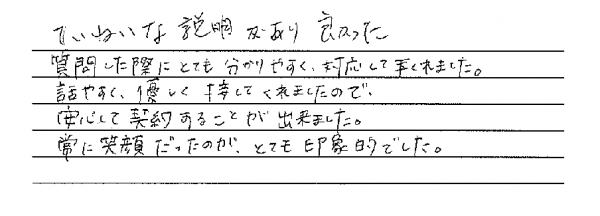 ていねいな説明があり良かった
質問した際にとても分かりやすく、対応して下くれました。
話やすく、優しく接してくれましたので、
安心して契約することが出来ました。
常に笑顔だったのが、とても印象的でした。